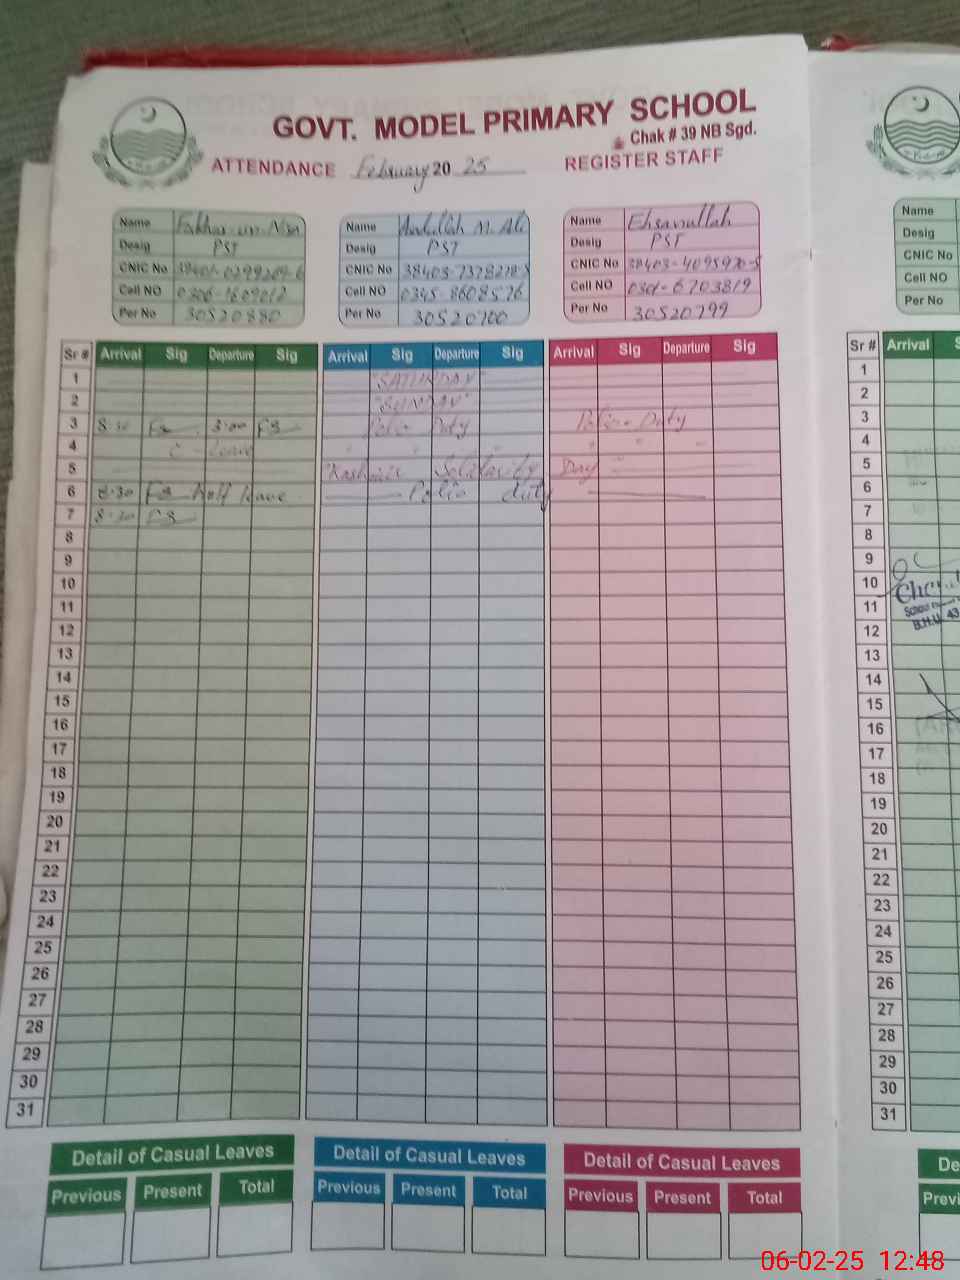 GOVT. MODEL PRIMARY SCHOOL
Chak # 39 NB Sgd.
ATTENDANCE February 2025 REGISTER STAFF
Name Fakhar-un-Nisa
Desig PST
CNIC No
Cell NO
Per No 30520880
Name Abdullah M. Ali
Desig PST
CNIC No
Cell NO 0345-8608576
Per No 30520700
Name Ehsanullah
Desig PST
CNIC No
Cell NO 0301-6703819
Per No 30520799
Name
Desig
CNIC No
Cell NO
Per No
Sr # Arrival Sig Departure Sig Arrival Sig Departure Sig Arrival Sig Departure Sig
1 "SATURDAY"
2 "SUNDAY"
3 8:30 FS 3:00 FS Polio Duty Polio Duty
4 C-leave " " " "
5 "Kashmir Solidarity Day"
6 8:30 FS Half leave Polio duty
7 8:30 FS
8
9
10
11
12
13
14
15
16
17
18
19
20
21
22
23
24
25
26
27
28
29
30
31
Detail of Casual Leaves Detail of Casual Leaves Detail of Casual Leaves
Previous Present Total Previous Present Total Previous Present Total
Sr # Arrival
1
2
3
4
5
6
7
8
9
10
11
12
13
14
15
16
17
18
19
20
21
22
23
24
25
26
27
28
29
30
31
B.H.U 43
06-02-25 12:48